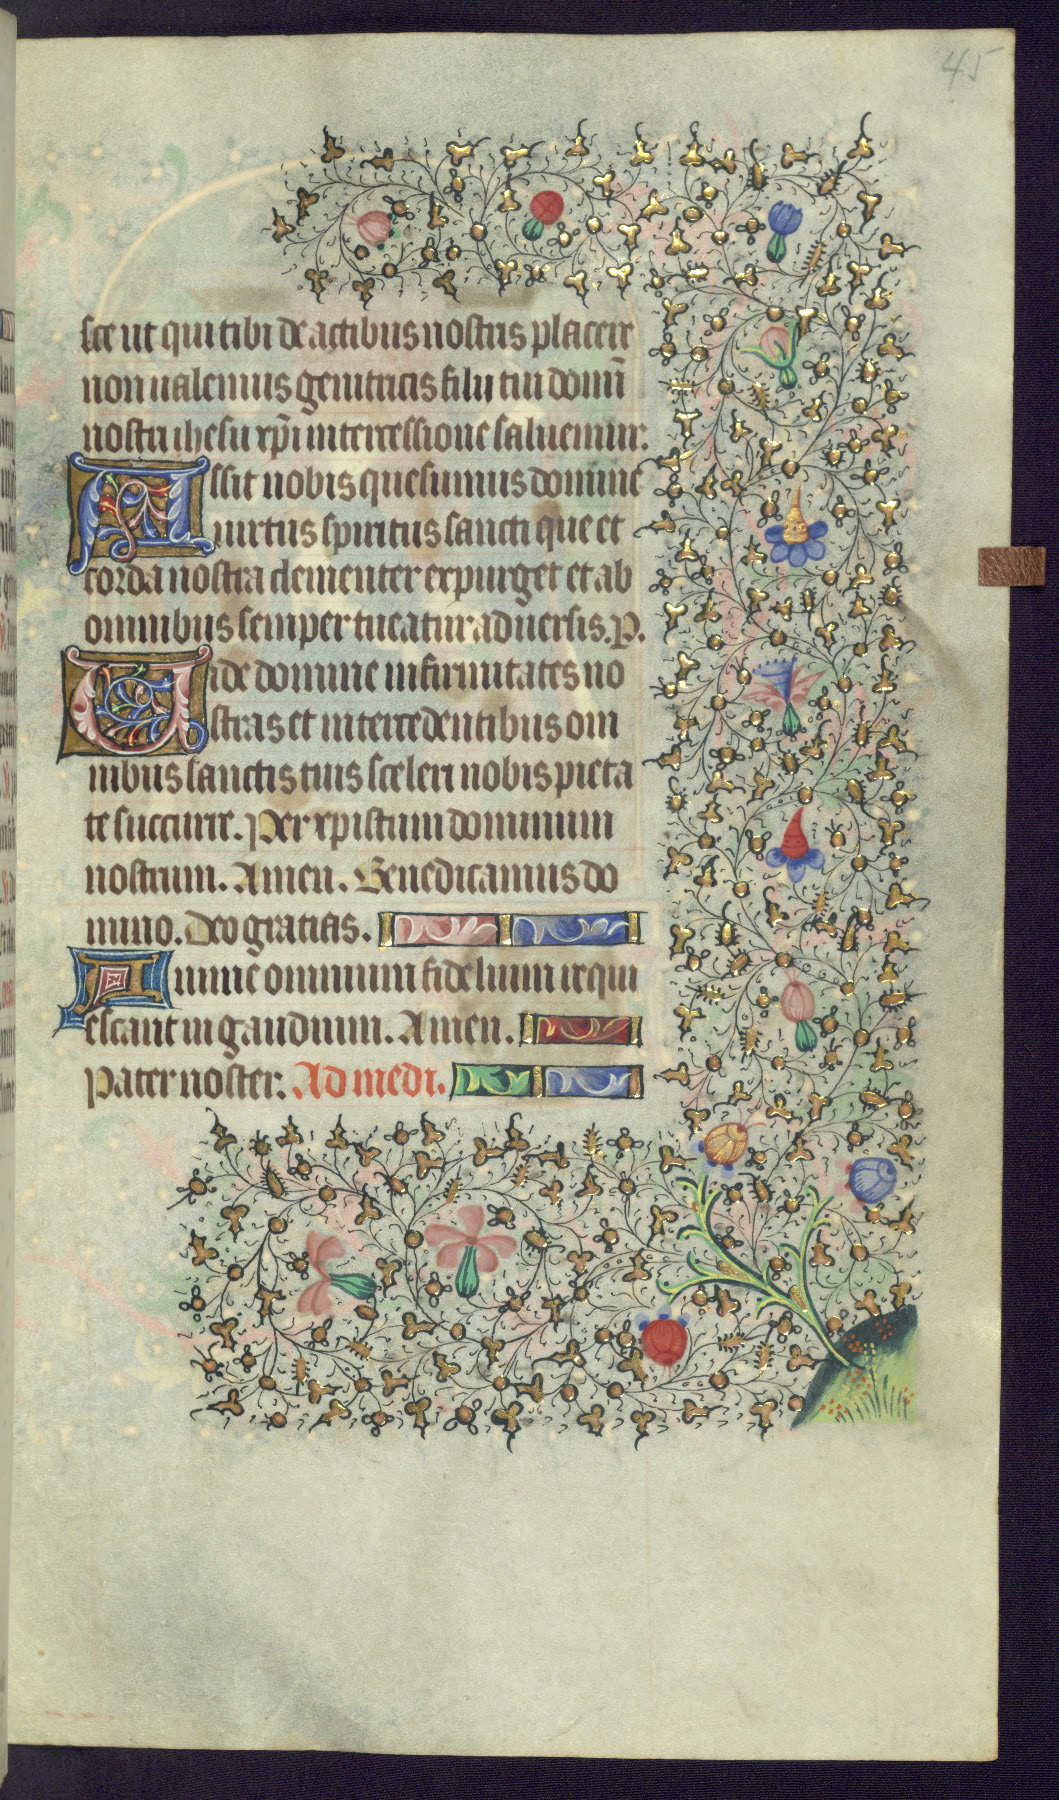 45
sce ut qui tibi de actibus nostris placere
non ualemus genitricis filii tui domĩ
nostri ihesu xp̃i intercessione saluemur:
Assit nobis quesumus domine
uirtus spiritus sancti que et
corda nostra clementer expurget et ab
omnibus semper tueatur aduersis. P.
Uide domine infirmitates no
stras et intercedentibus om
nibus sanctis tuis sceleri nobis pieta
te succurre. Per xpistum dominum
nostrum. Amen. Benedicamus do
mino. Deo gratias.
Anime omnium fidelium requi
escant in gaudium. Amen.
Pater noster. Ad medi.